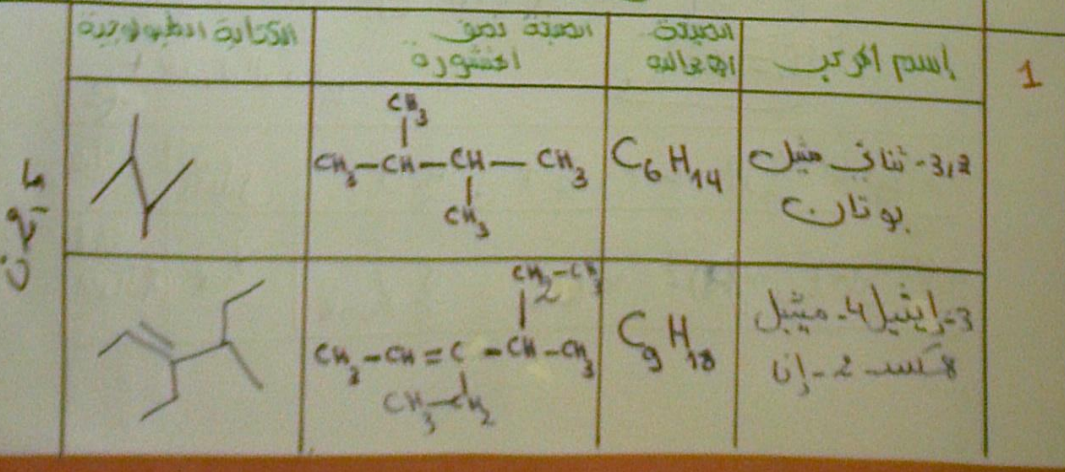 1
إسم المركب
الصيغة
الاجمالية
الصيغة نصف
المنشورة
الكتابة الطبولوجية
2,3- ثنائي مثيل
بوتان
C6H14
CH3
CH3–CH–CH–CH3
CH3
3-إيثيل 4- مثيل
هكس-2-إن
C9H18
CH2–CH3
CH3–CH=C–CH–CH3
CH3–CH2